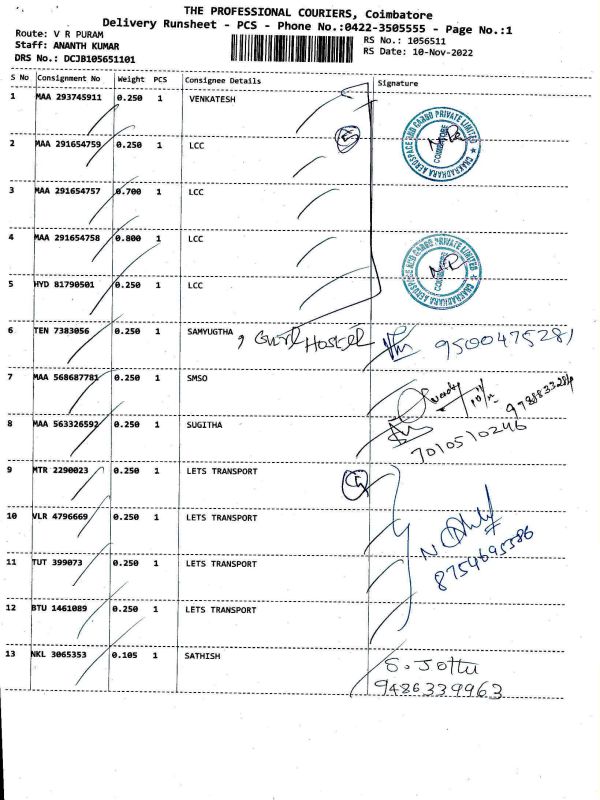 THE PROFESSIONAL COURIERS, Coimbatore
Delivery Runsheet - PCS - Phone No.:0422-3505555 - Page No.:1
Route: V R PURAM
Staff: ANANTH KUMAR
DRS No.: DCJB105651101
RS No.: 1056511
RS Date: 10-Nov-2022
S No Consignment No Weight PCS Consignee Details Signature
1 MAA 293745911 0.250 1 VENKATESH
2 MAA 291654759 0.250 1 LCC
3 MAA 291654757 0.700 1 LCC
4 MAA 291654758 0.800 1 LCC
5 HYD 81790501 0.250 1 LCC
CHAKRADHARA AEROSPACE AND CARGO PRIVATE LIMITED
COIMBATORE
CHAKRADHARA AEROSPACE AND CARGO PRIVATE LIMITED
COIMBATORE
6 TEN 7383056 0.250 1 SAMYUGTHA, Girl Hostel 9500475281
7 MAA 568687781 0.250 1 SMSO
8 MAA 563326592 0.250 1 SUGITHA 7010510246
9 MTR 2290023 0.250 1 LETS TRANSPORT
10 VLR 4796669 0.250 1 LETS TRANSPORT
8754695386
11 TUT 399073 0.250 1 LETS TRANSPORT
12 BTU 1461089 0.250 1 LETS TRANSPORT
13 NKL 3065353 0.105 1 SATHISH S. Jothi
9486339963